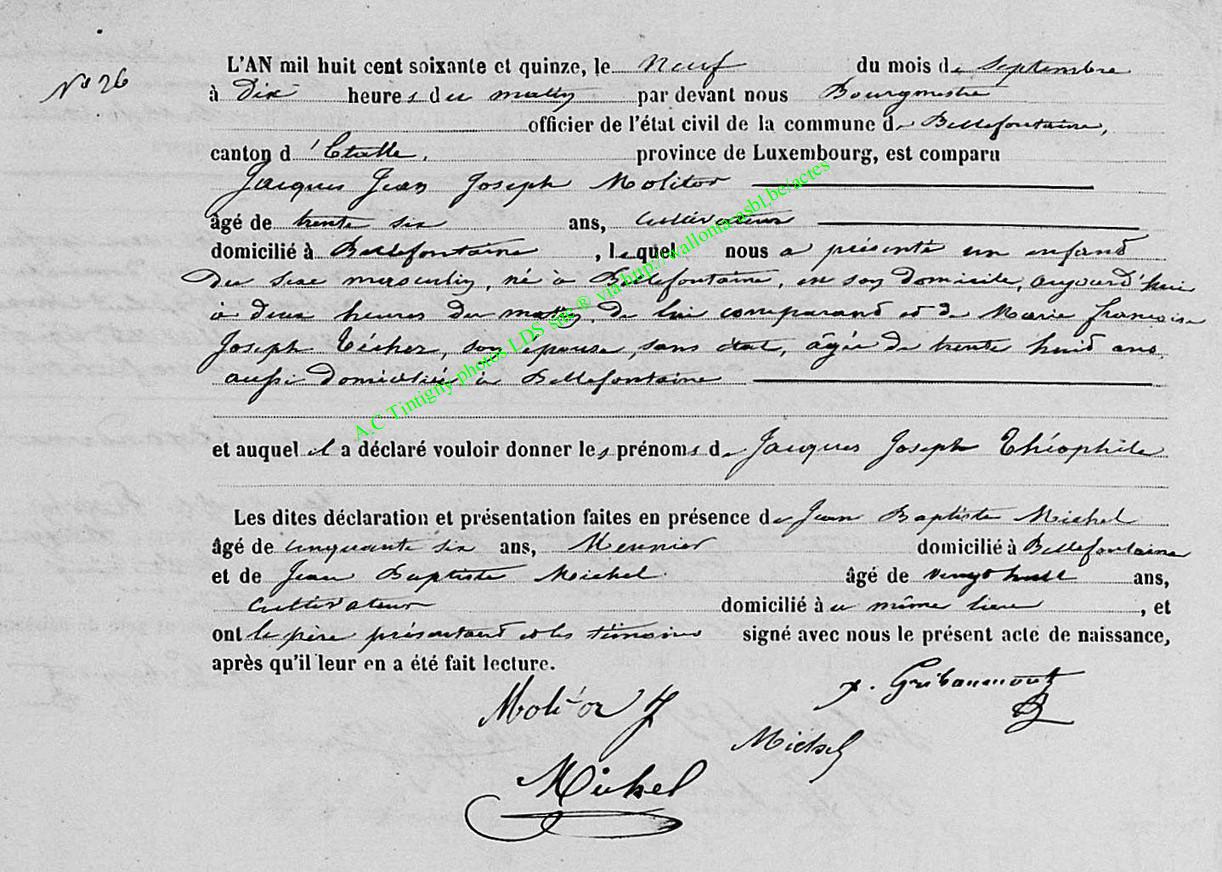 N° 26
L'AN mil huit cent soixante et quinze, le Neuf du mois de Septembre
à Dix heures du matin par devant nous Bourgmestre
officier de l'état civil de la commune de Bellefontaine,
canton d'Etalle, province de Luxembourg, est comparu
Jacques Jean Joseph Molitor
âgé de trente six ans, cultivateur
domicilié à Bellefontaine, lequel nous a présenté un enfant
du sexe masculin, né à Bellefontaine, en son domicile, aujourd'hui
à deux heures du matin, de lui comparant et de Marie françoise
Joseph Técher, son épouse, sans état, âgée de trente huit ans,
aussi domiciliée à Bellefontaine
et auquel il a déclaré vouloir donner les prénoms de Jacques Joseph Théophile
Les dites déclaration et présentation faites en présence de Jean Baptiste Michel
âgé de cinquante six ans, Meunier domicilié à Bellefontaine
et de Jean Baptiste Michel âgé de vingt huit ans,
cultivateur domicilié à u même lieu, et
ont le père présentant et les témoins signé avec nous le présent acte de naissance,
après qu'il leur en a été fait lecture.
Molitor J
Gribaumont
Michel
Michel
A.C Tintigny photos LDS site ® via http://wallonia.asbl.be/actes